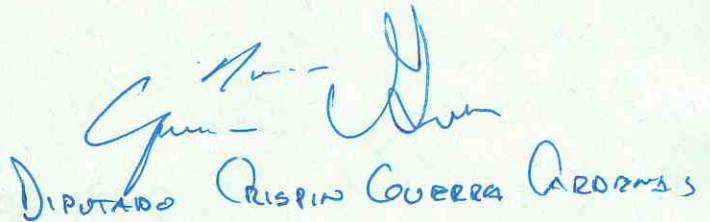 DIPUTADO CRISPIN GUERRA CARDENAS